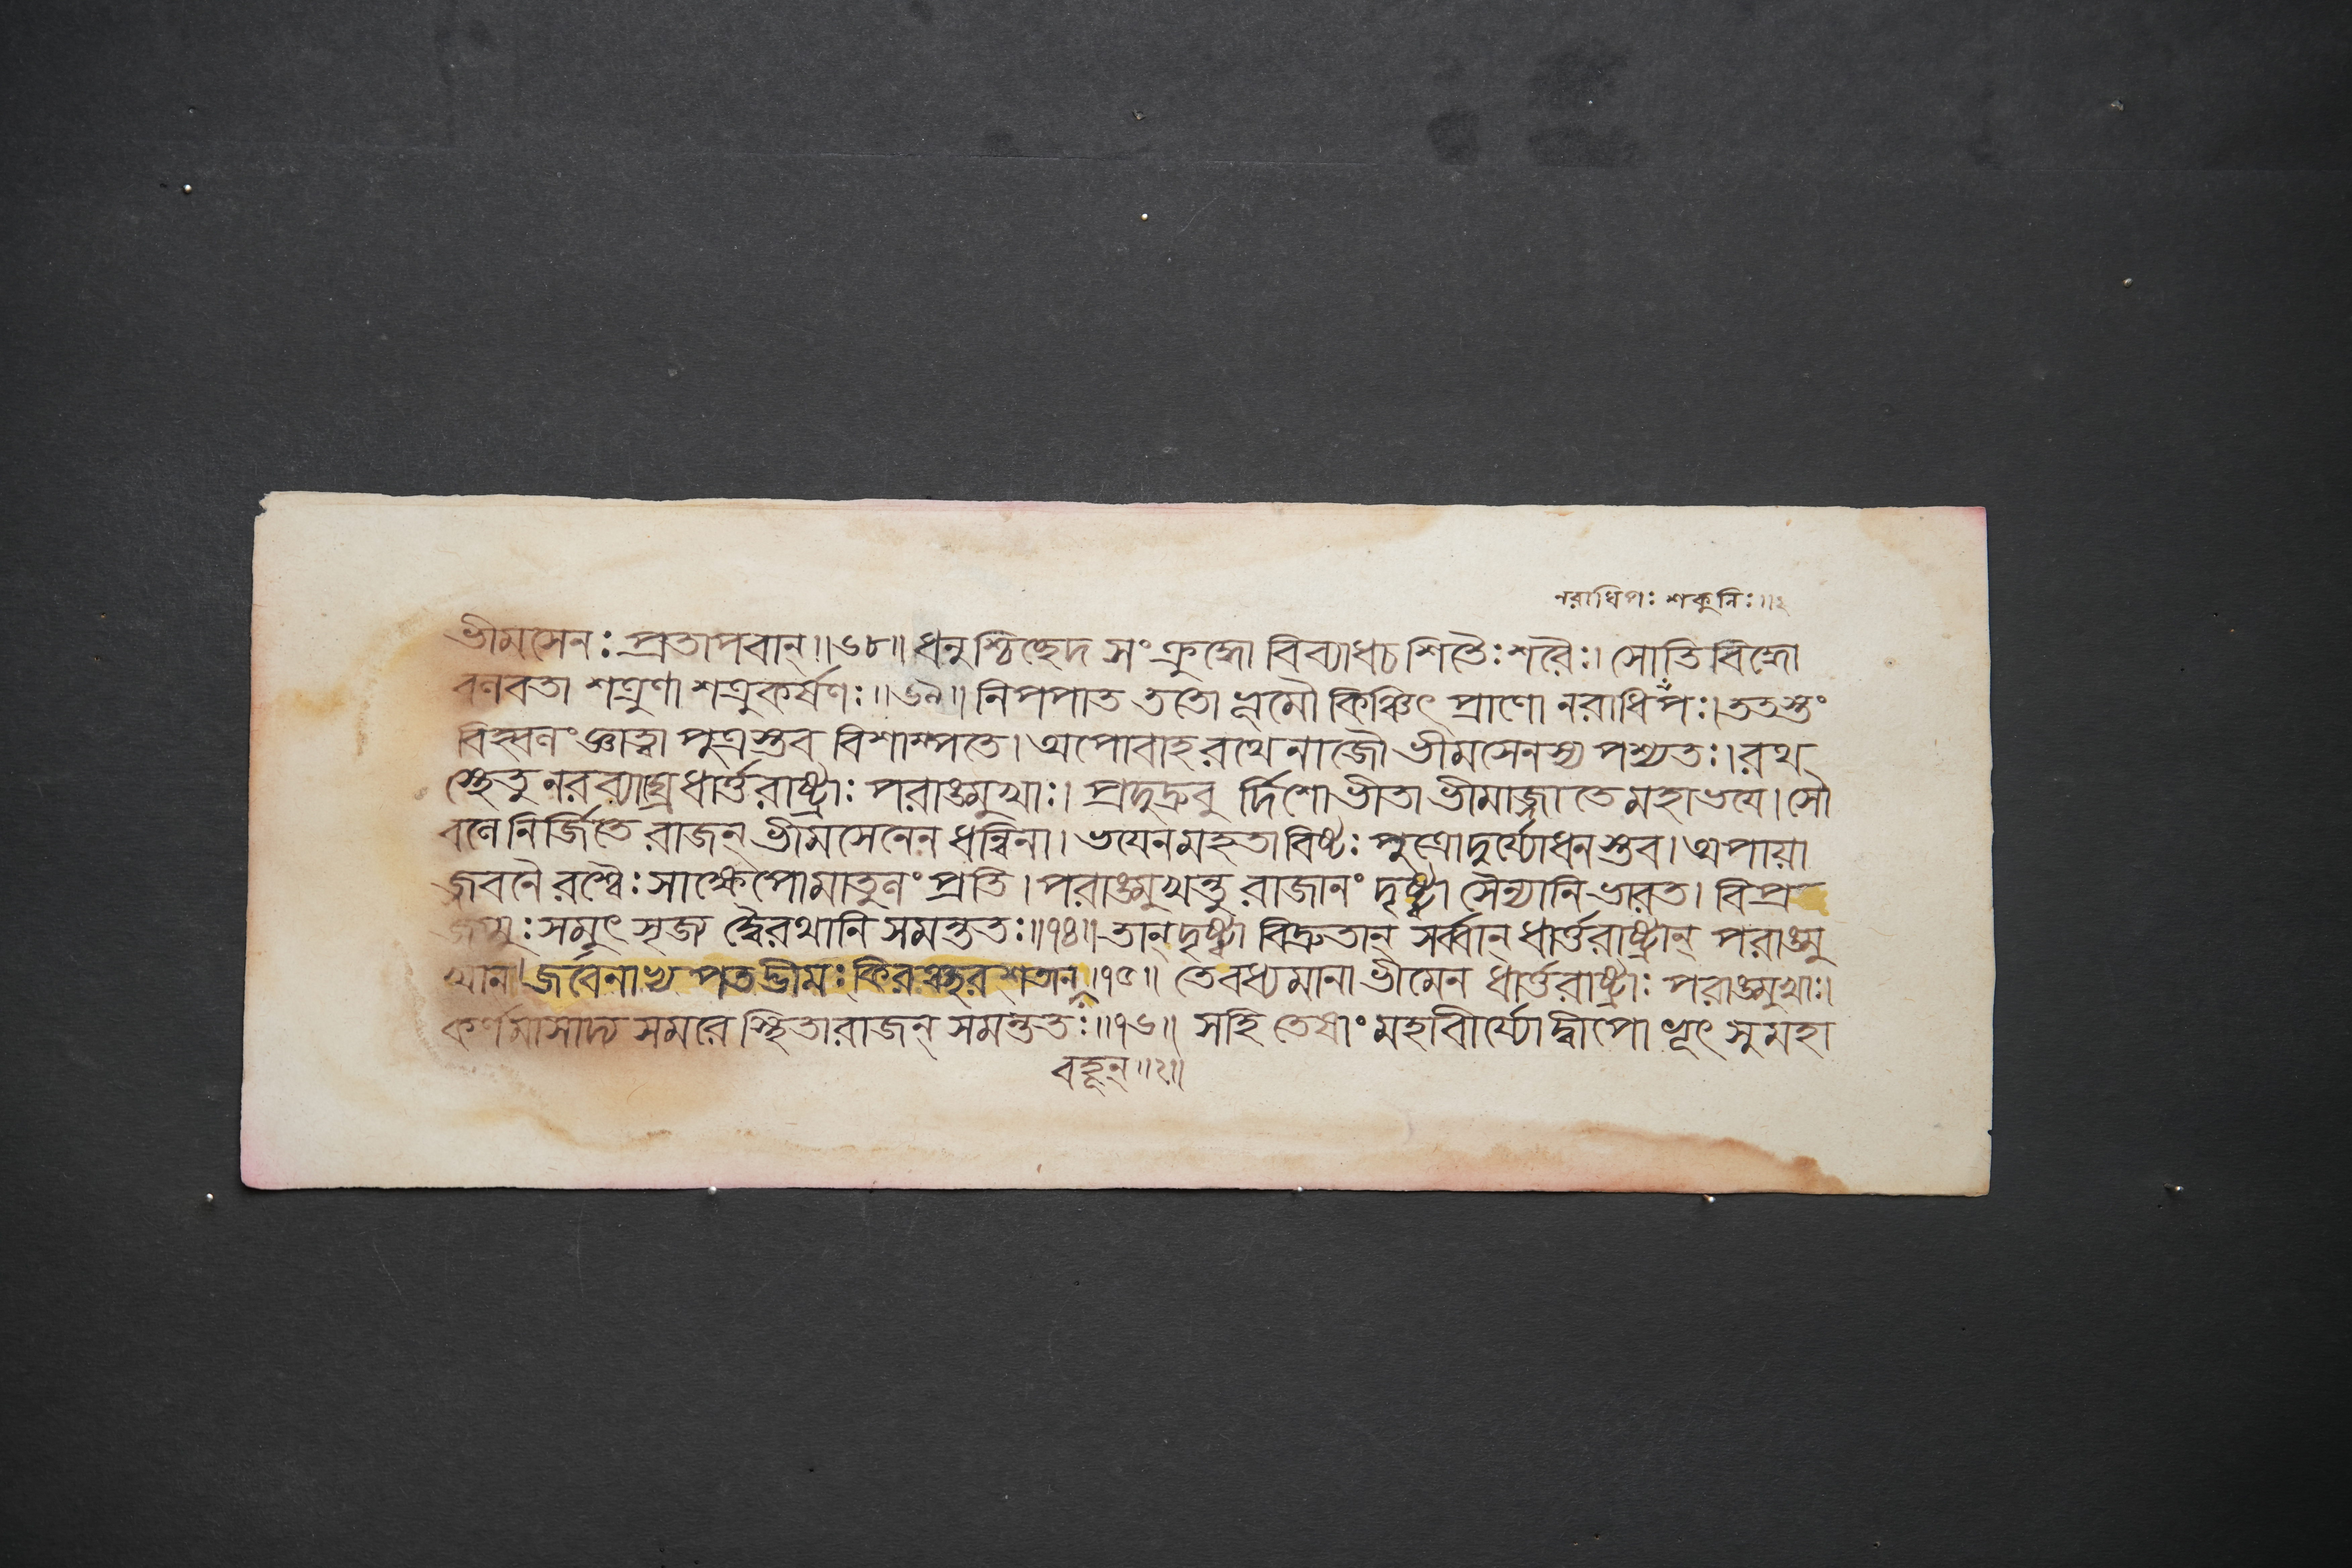 নরাধিপঃ শকুনিঃ॥২
ভীমসেনঃ প্রতাপবান্॥৬৮॥ ধনুশ্চিচ্ছেদ সংক্রুদ্ধো বিব্যাধচ শিতৈঃ শরৈঃ। সোতি বিদ্ধো
বলবতা শত্রুণা শত্রুকর্ষণঃ॥৬৯॥ নিপপাত ততো ভূমৌ কিঞ্চিৎ প্রাণো নরাধিপঃ। ততস্তং
বিহ্বলং জ্ঞাত্বা পুত্রস্তব বিশাম্পতে। অপোবাহ রথেনাজৌ ভীমসেনস্য পশ্যতঃ। রথ
স্থেতু নরব্যাঘ্র ধার্ত্তরাষ্ট্রাঃ পরাঙ্মুখাঃ। প্রদুদ্রুবু র্দিশো ভীতা ভীমাজ্জাতে মহাভয়ে। সৌ
বলে নির্জিতে রাজন্ ভীমসেনেন ধন্বিনা। ভয়েন মহতাবিষ্টঃ পুত্রো দুর্য্যোধন স্তব। অপায়া
জ্জবনৈ রশ্বৈঃ সাক্ষেপো মাতুলং প্রতি। পরাঙ্মুখন্তু রাজানং দৃষ্ট্বা সৈন্যানি ভারত। বিপ্র
জগ্মুঃ সমুৎসৃজ্য দ্বৈরথানি সমন্ততঃ॥৭৪॥ তান্ দৃষ্ট্বা বিদ্রুতান্ সর্ব্বান্ ধার্ত্তরাষ্ট্রান্ পরাঙ্মু
খান্। জবেনাভ্য পতদ্ভীমঃ কিরঞ্ছর শতান্॥৭৫॥ তে বধ্যমানা ভীমেন ধার্ত্তরাষ্ট্রাঃ পরাঙ্মুখাঃ।
কর্ণমাসাদ্য সমরে স্থিতা রাজন্ সমন্ততঃ॥৭৬॥ সহি তেষাং মহাবীর্য্যো দ্বীপো ভূৎ সুমহা
বহূন্॥২॥